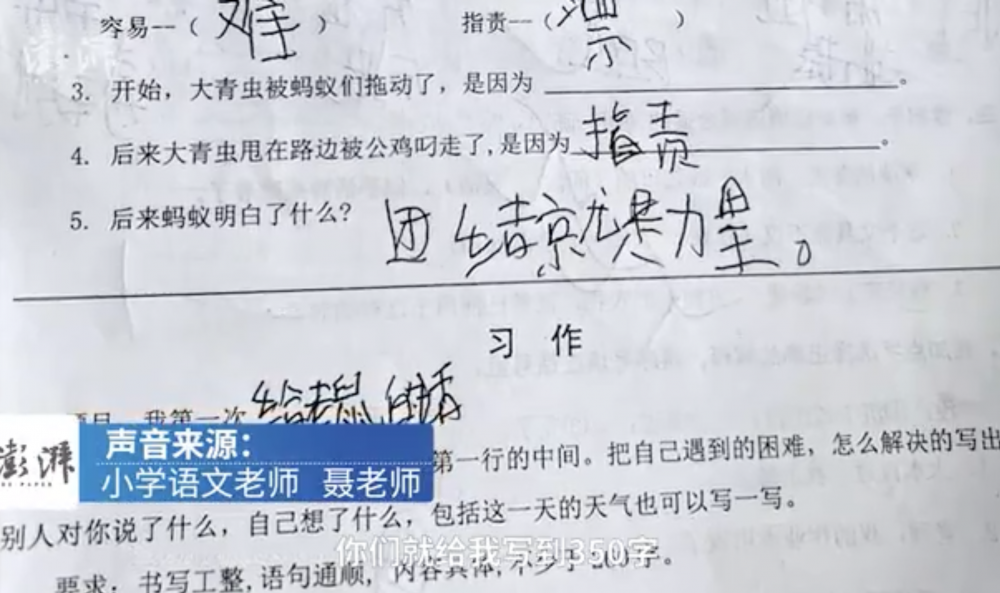 容易—（难） 指责—（票）
澎湃
3. 开始，大青虫被蚂蚁们拖动了，是因为________。
4. 后来大青虫甩在路边被公鸡叼走了，是因为指责________。
5. 后来蚂蚁明白了什么？ 团结京就是力量。
习 作
题目：我第一次给老鼠
澎湃
声音来源：
小学语文老师 聂老师
第一行的中间。把自己遇到的困难，怎么解决的写出
别人对你说了什么，自己想了什么，包括这一天的天气也可以写一写。
你们就给我写到350字
要求：书写工整，语句通顺，内容具体，不少于200字。